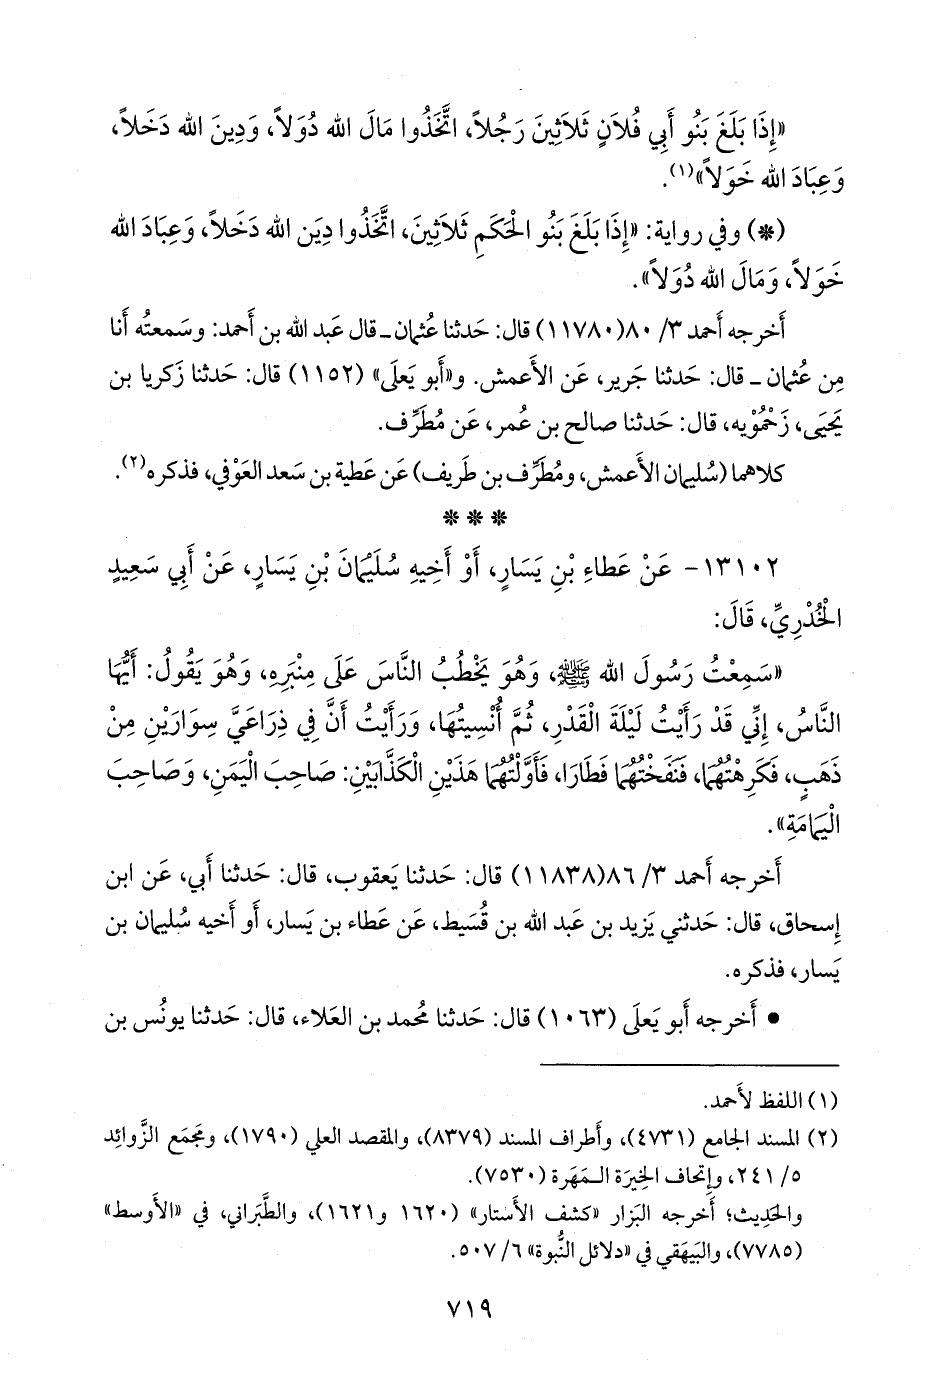 «إِذَا بَلَغَ بَنُو أَبِي فُلاَنٍ ثَلاَثِينَ رَجُلاً، اتَّخَذُوا مَالَ الله دُوَلاً، وَدِينَ الله دَخَلاً،
وَعِبَادَ الله خَوَلاً»(١).
(*) وفي رواية: «إِذَا بَلَغَ بَنُو الْحَكَمِ ثَلاَثِينَ، اتَّخَذُوا دِيَن الله دَخَلاً، وَعِبَادَ الله
خَوَلاً، وَمَالَ الله دُوَلاً».
أَخرجه أَحمد ٣/ ٨٠(١١٧٨٠) قال: حَدثنا عُثمان ـ قال عَبد الله بن أَحمد: وسَمعتُه أَنا
مِن عُثمان ـ قال: حَدثنا جَرير، عَن الأَعمش. و«أَبو يَعلَى» (١١٥٢) قال: حَدثنا زَكريا بن
يَحيَى، زَحْمُوْيه، قال: حَدثنا صالح بن عُمر، عَن مُطَرِّف.
كلاهما (سُليمان الأَعمش، ومُطَرِّف بن طَريف) عَن عَطية بن سَعد العَوْفي، فذكره(٢).
* * *
١٣١٠٢- عَنْ عَطاءِ بْنِ يَسَارٍ، أَوْ أَخِيهِ سُلَيْمَانَ بْنِ يَسَارٍ، عَنْ أَبِي سَعِيدٍ
الْخُدْرِيِّ، قَالَ:
«سَمِعْتُ رَسُولَ الله ﷺ، وَهُوَ يَخْطُبُ النَّاسَ عَلَى مِنْبَرِهِ، وَهُوَ يَقُولُ: أَيُّهَا
النَّاسُ، إِنِّي قَدْ رَأَيْتُ لَيْلَةَ الْقَدْرِ، ثُمَّ أُنْسِيتُهَا، وَرَأَيْتُ أَنَّ فِي ذِرَاعَيَّ سِوَارَيْنِ مِنْ
ذَهَبٍ، فَكَرِهْتُهُمَا، فَنَفَخْتُهُمَا فَطَارَا، فَأَوَّلْتُهُمَا هَذَيْنِ الْكَذَّابَيْنِ: صَاحِبَ الْيَمَنِ، وَصَاحِبَ
الْيَمَامَةِ».
أَخرجه أَحمد ٣/ ٨٦(١١٨٣٨) قال: حَدثنا يَعقوب، قال: حَدثنا أَبي، عَن ابن
إِسحاق، قال: حَدثني يَزيد بن عَبد الله بن قُسَيط، عَن عَطاء بن يَسار، أَو أَخيه سُليمان بن
يَسار، فذكره.
• أَخرجه أَبو يَعلَى (١٠٦٣) قال: حَدثنا مُحمد بن العَلاء، قال: حَدثنا يونُس بن
(١) اللفظ لأَحمد.
(٢) المسند الجامع (٤٧٣١)، وأَطراف المسند (٨٣٧٩)، والمقصد العلي (١٧٩٠)، ومَجمَع الزَّوائِد
٥/ ٢٤١، وإِتحاف الخِيرَة الـمَهَرة (٧٥٣٠).
والحَدِيث؛ أَخرجه البَزار «كشف الأَستار» (١٦٢٠ و١٦٢١)، والطَّبَراني، في «الأَوسط»
(٧٧٨٥)، والبَيهَقي في «دلائل النُّبوة» ٦/ ٥٠٧.
٧١٩